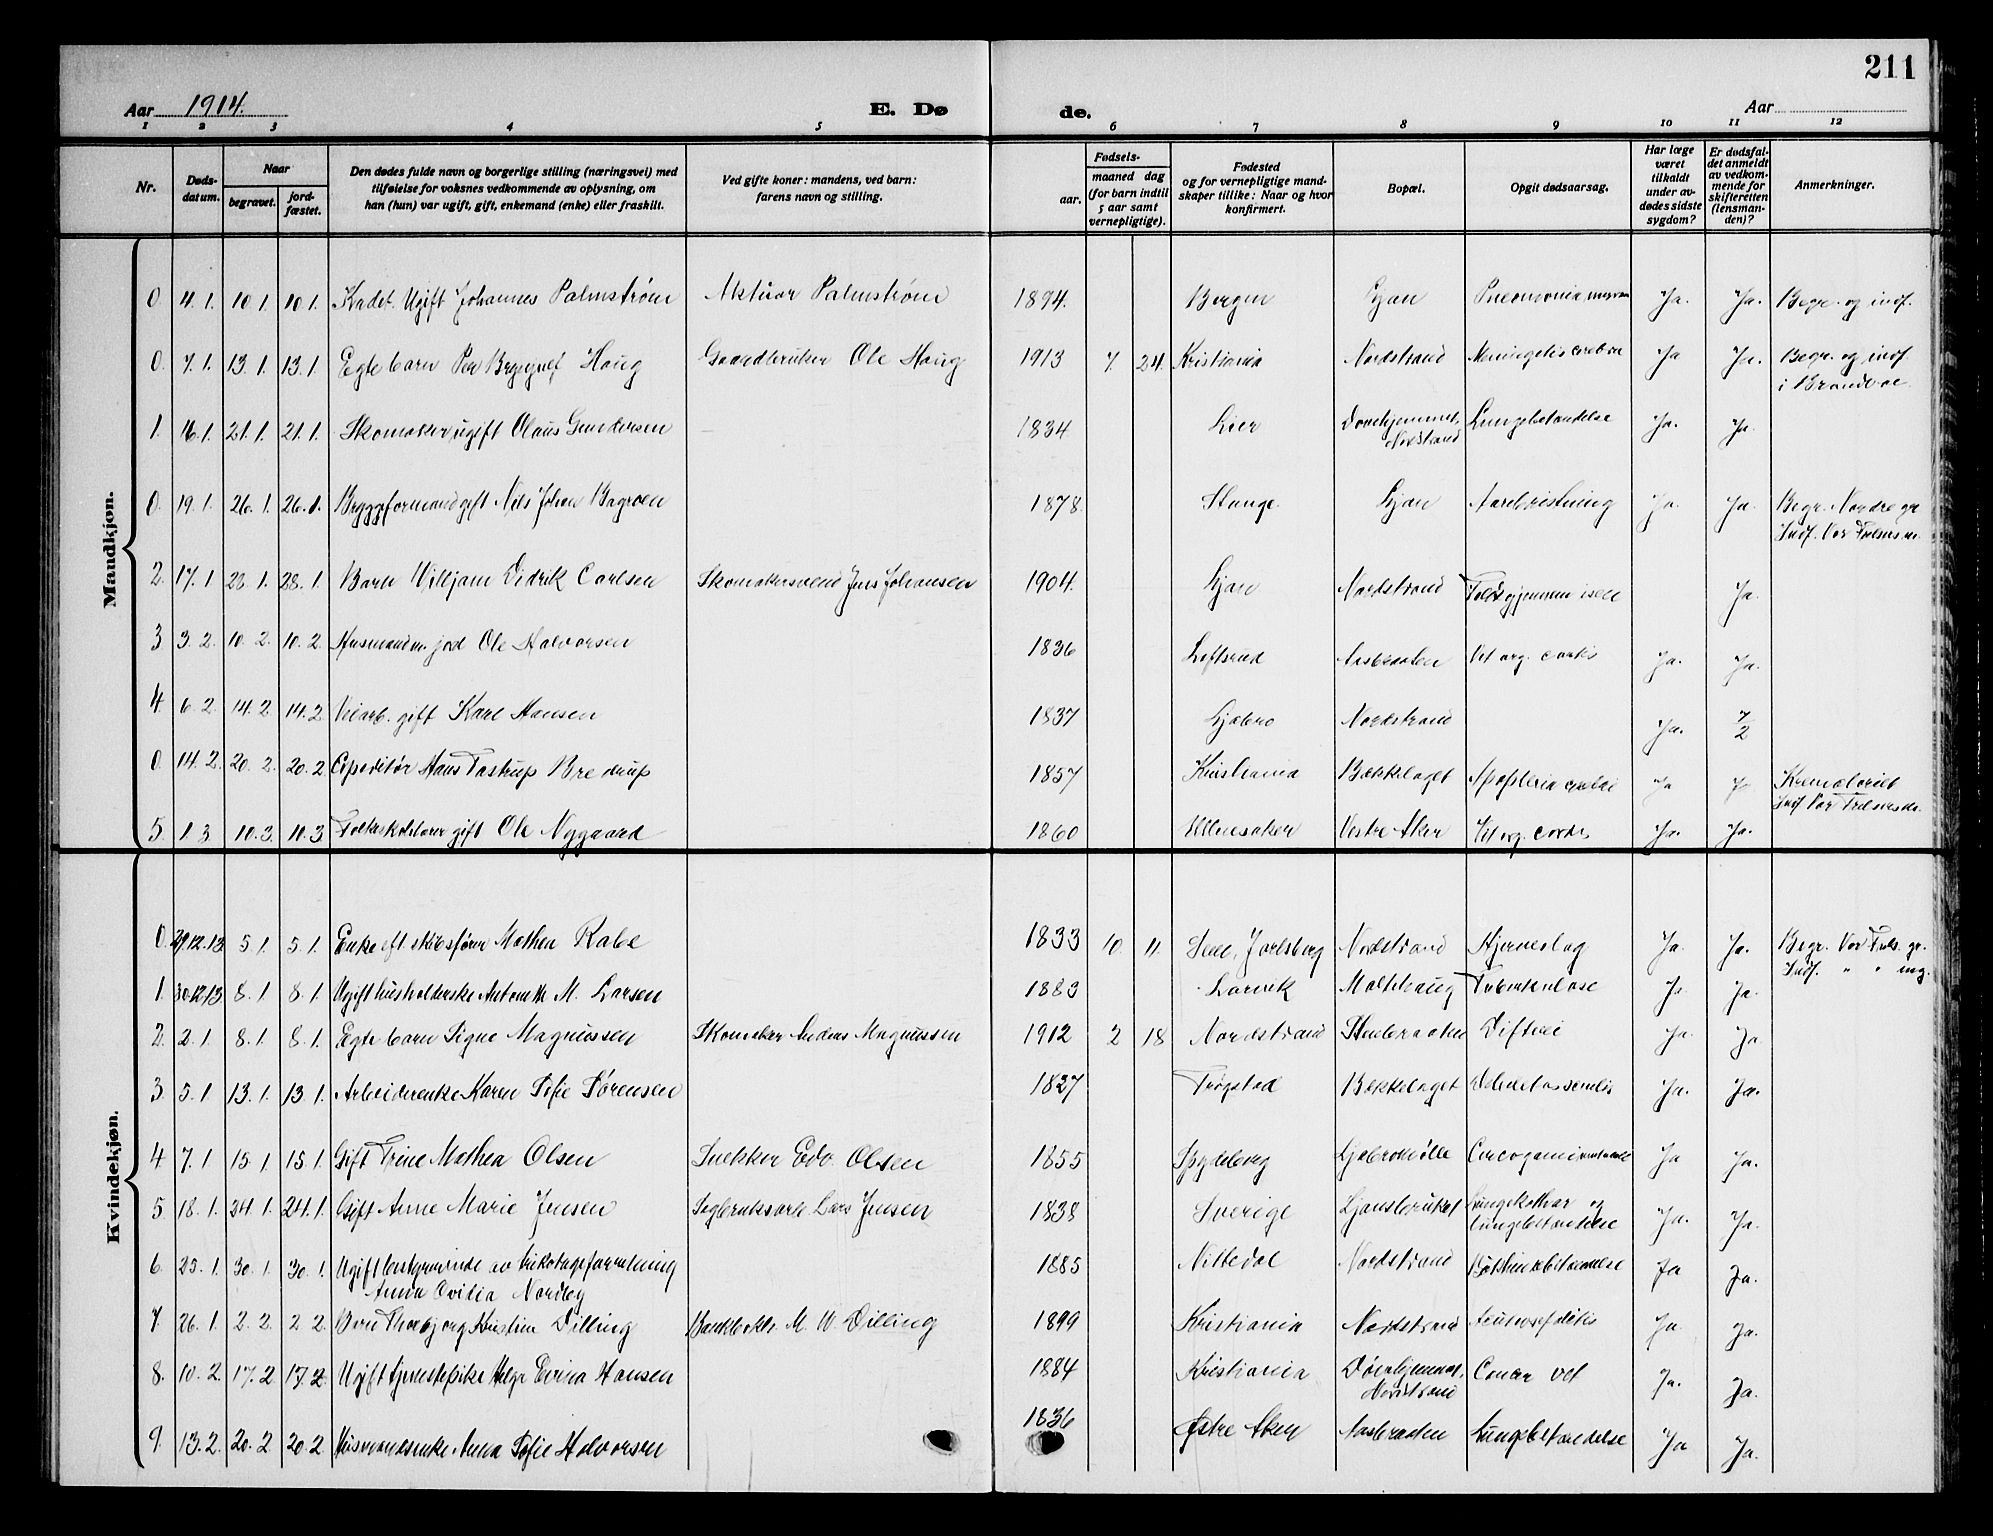 211
Aar 1914. E. Dø de. Aar
1 2 3 4 5 6 7 8 9 10 11 12
Nr.
Døds-
datum.
Naar
begravet.
jord-
fæstet.
Den dødes fulde navn og borgerlige stilling (næringsvei) med
tilføielse for voksnes vedkommende av oplysning, om
han (hun) var ugift, gift, enkemand (enke) eller fraskilt.
Ved gifte koner: mandens, ved barn:
farens navn og stilling.
Fødsels-
aar.
maaned dag
(for barn indtil
5 aar samt
vernepligtige).
Fødested
og for vernepligtige mand-
skaper tillike: Naar og hvor
konfirmert.
Bopæl.
Opgit dødsaarsag.
Har læge
været
tilkaldt
under av-
dødes sidste
sygdom?
Er dødsfal-
det anmeldt
av vedkom-
mende for
skifteretten
(lensman-
den)?
Anmerkninger.
Mandkjøn.
0 4. 1. 10 1. 10 1. Kadet Ugift Johannes Palmstrøm Aktuar Palmstrøm 1894. Bergen Ljan Pneumonia Ja. Ja. Begr. og indf.
0. 7. 1. 13. 1. 13. 1 Egte barn Per Haug Gaardbruker Ole Haug 1913 7. 24. Kristiania Nordstrand Ja Ja. Begr. og indf.
i
1. 16. 1. 21. 1. 21. 1. Skomaker ugift Olaus Gundersen 1834 Lier Lungebetændelse Ja. Ja.
Nordstrand
0. 19. 1. 26. 1. 26. 1. Bryggeformand gift Nils Johan 1878. Stange. Ljan Ja. Ja. Begr. Nordre gr
Indf. Vor
2. 17. 1 28. 1. 28. 1. Barn Villjam Didrik Carlsen Skomakersvend Jens Johansen 1904. Ljan Nordstrand Faldt gjennem isen Ja.
3 3. 2. 10. 2. 10. 2. Husmand m. jord Ole Halvorsen 1836 Vit. org. cordis Ja. Ja.
4. 6. 2. 14. 2 14. 2 Veiarb. gift Karl Hansen 1837 Ljabro Nordstrand Ja. 7/2
0. 14. 2. 20. 2. 20. 2 Expeditør Hans Tastrup Bredrup 1857 Kristiania Bækkelaget Apoplexia Ja Ja Krematoriet
Indf Vor Frelsers
5. 1. 3 10. 3. 10. 3 Folkeskolelærer gift Ole Nygaard 1860 Ullensaker Vestre Aker Vit org. cordis Ja. Ja.
Kvindekjøn.
0. 29.12.13. 5. 1. 5. 1. Enke eft. skibsfører Mathea Rabe 1833 10. 11. Sem, Jarlsberg Nordstrand Hjerneslag Ja. Ja. Begr. Vor Frels. gr.
Indf. " " mg.
1. 30.12.13 8. 1 8. 1. Ugift husholderske M. Larsen 1883 Larvik Malthaug Tuberkulose Ja Ja.
2. 2. 1. 8. 1. 8. 1. Egte barn Signe Magnussen Skomaker Anders Magnussen 1912 2 18 Nordstrand Difteri Ja. Ja
3. 5. 1 13. 1. 13 1. Arbeiderenke Karen Sofie Sørensen 1827 Trøgstad Bækkelaget senilis Ja. Ja.
4. 7. 1 15. 1 15. 1. Gift Trine Mathea Olsen Snekker Edv. Olsen 1855 Spydeberg Ja Ja.
5. 18. 1. 24. 1. 24. 1. Gift Anne Marie Jensen Teglverksarb. Lars Jensen 1838 Sverige Ljansbruket Lungekathar og
lungebetændelse Ja. Ja.
6. 25. 1. 30. 1. 30. 1. Ugift bestyrerinde av trikotageforretning
Anna Ovidia Nordby 1885 Nittedal Nordstrand Ja Ja.
7. 26. 1. 2. 2. 2 2. Barn Thorbjørg Kristine Dilling M. W. Dilling 1899 Kristiania Nordstrand Ja. Ja.
8. 10. 2. 17. 2 17. 2. Ugift tjenestepike Hansen 1884 Kristiania Cancer Ja. Ja.
Nordstrand
9. 13. 2. 20. 2 20. 2 Husmandsenke Anna Sofie Halvorsen 1836 Østre Aker Aasbraaten Lungebetændelse Ja Ja.